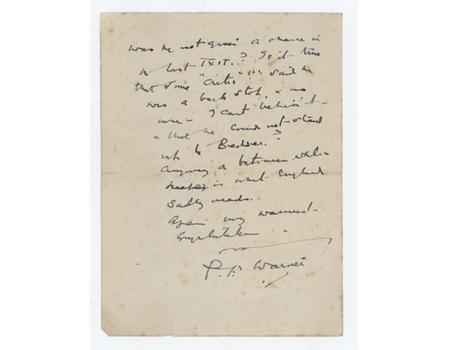 was he not given a chance in
a last Test? Is it true
that some "critic" said he
was a back stop, & no
more - I can't believe it -
& that he could not stand
up to Bedser?
Anyway a batsman while
keeper is what England
sadly needs.
Again my warmest
congratulations
P.F. Warner